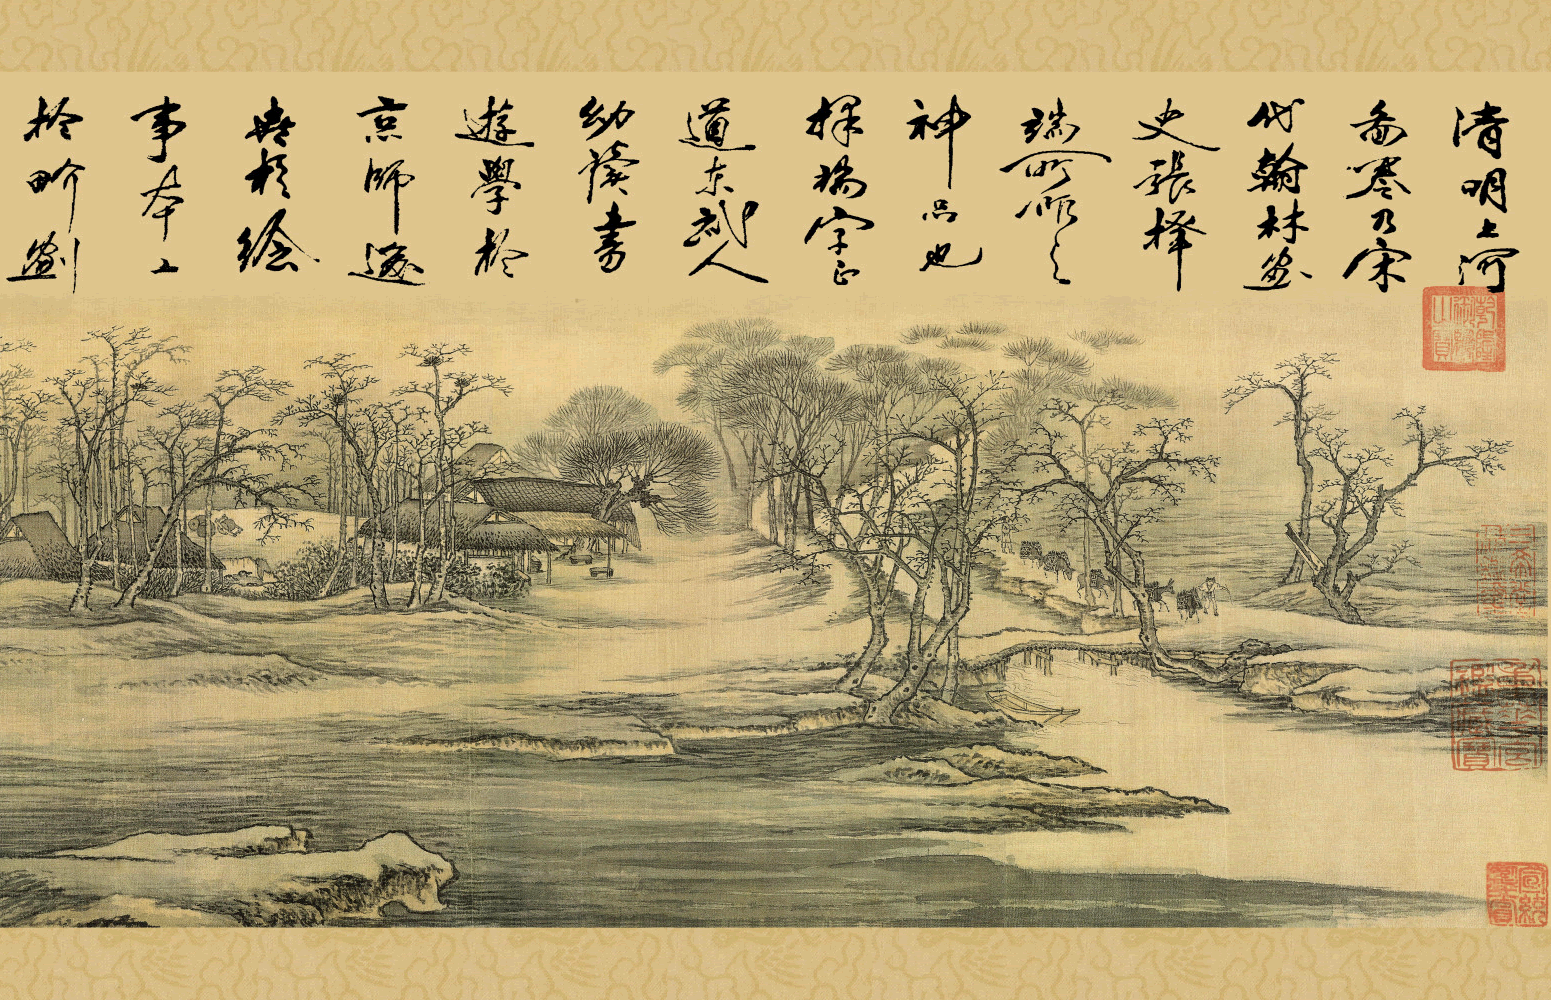 清明上河
啚卷乃宋
代翰林畫
史張擇
端所作之
神品也
擇端字正
道東武人
幼讀書
遊學於
京師
於繪
事本工
於畍劃